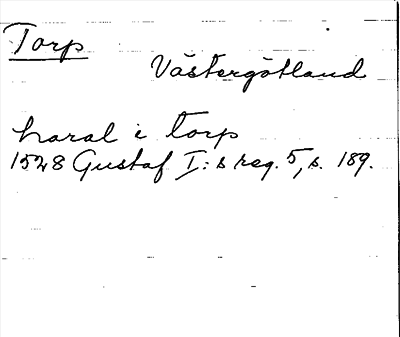 Torp
Västergötland
haral i torp
1528 Gustaf I:s reg. 5, s. 189.